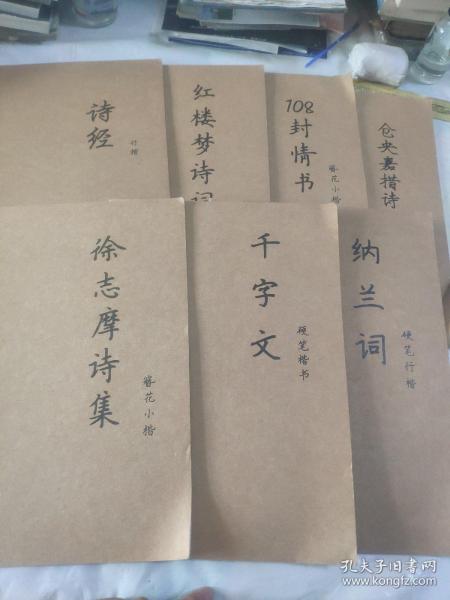 诗经
行楷
红楼梦诗词
108
封情书
簪花小楷
仓央嘉措诗
徐志摩诗集
簪花小楷
千字文
硬笔楷书
纳兰词
硬笔行楷
孔夫子旧书网
www.kongfz.com